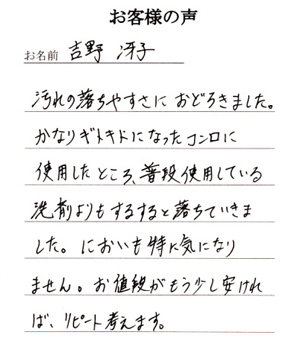 お客様の声
お名前 吉野 冴子
汚れの落ちやすさに おどろきました。
かなりギトギトになったコンロに
使用したところ、普段使用している
洗剤よりもするすると落ちていきま
した。においも特に気になり
ません。お値段がもう少し安けれ
ば、リピート考えます。